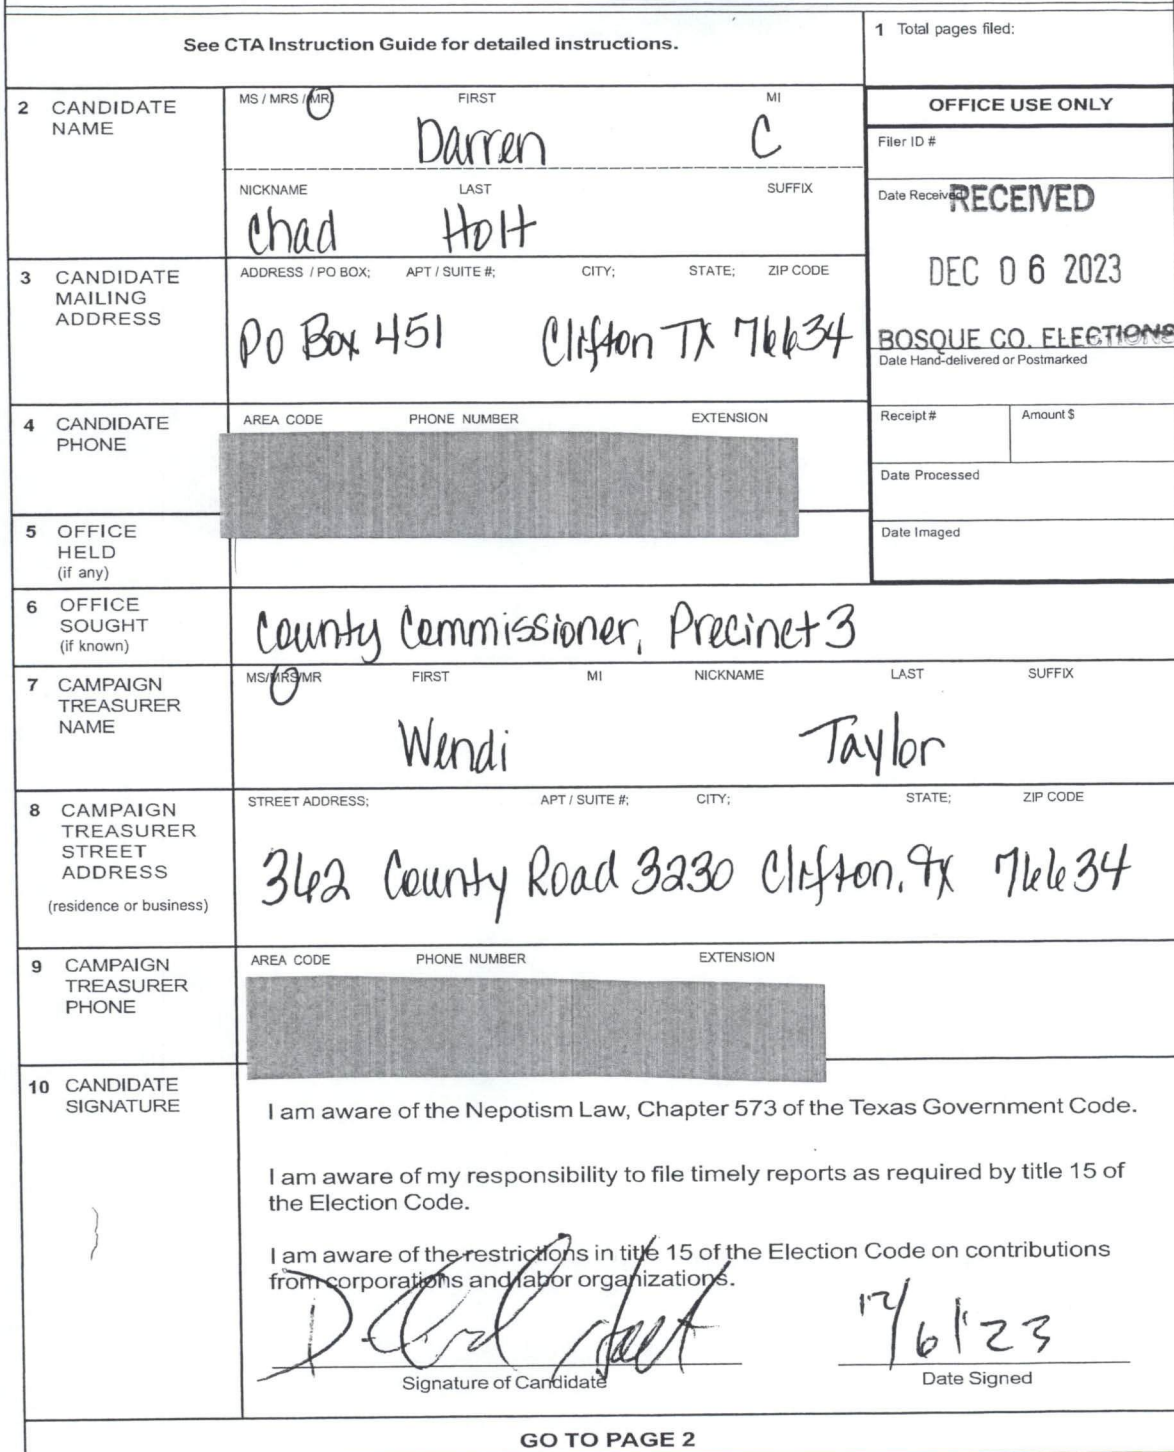 See CTA Instruction Guide for detailed instructions.
1 Total pages filed:
2 CANDIDATE NAME
MS / MRS / MR FIRST MI
Darren C
NICKNAME LAST SUFFIX
Chad Holt
OFFICE USE ONLY
Filer ID #
Date Received
RECEIVED
DEC 06 2023
BOSQUE CO. ELECTIONS
Date Hand-delivered or Postmarked
Receipt # Amount $
Date Processed
Date Imaged
3 CANDIDATE MAILING ADDRESS
ADDRESS / PO BOX; APT / SUITE #; CITY; STATE; ZIP CODE
PO Box 451 Clifton TX 76634
4 CANDIDATE PHONE
AREA CODE PHONE NUMBER EXTENSION
5 OFFICE HELD (if any)
6 OFFICE SOUGHT (if known)
County Commissioner, Precinct 3
7 CAMPAIGN TREASURER NAME
MS/MRS/MR FIRST MI NICKNAME LAST SUFFIX
Wendi Taylor
8 CAMPAIGN TREASURER STREET ADDRESS (residence or business)
STREET ADDRESS; APT / SUITE #; CITY; STATE; ZIP CODE
362 County Road 3230 Clifton, TX 76634
9 CAMPAIGN TREASURER PHONE
AREA CODE PHONE NUMBER EXTENSION
10 CANDIDATE SIGNATURE
I am aware of the Nepotism Law, Chapter 573 of the Texas Government Code.
I am aware of my responsibility to file timely reports as required by title 15 of
the Election Code.
I am aware of the restrictions in title 15 of the Election Code on contributions
from corporations and labor organizations.
D. Chad Holt 12/6/23
Signature of Candidate Date Signed
GO TO PAGE 2